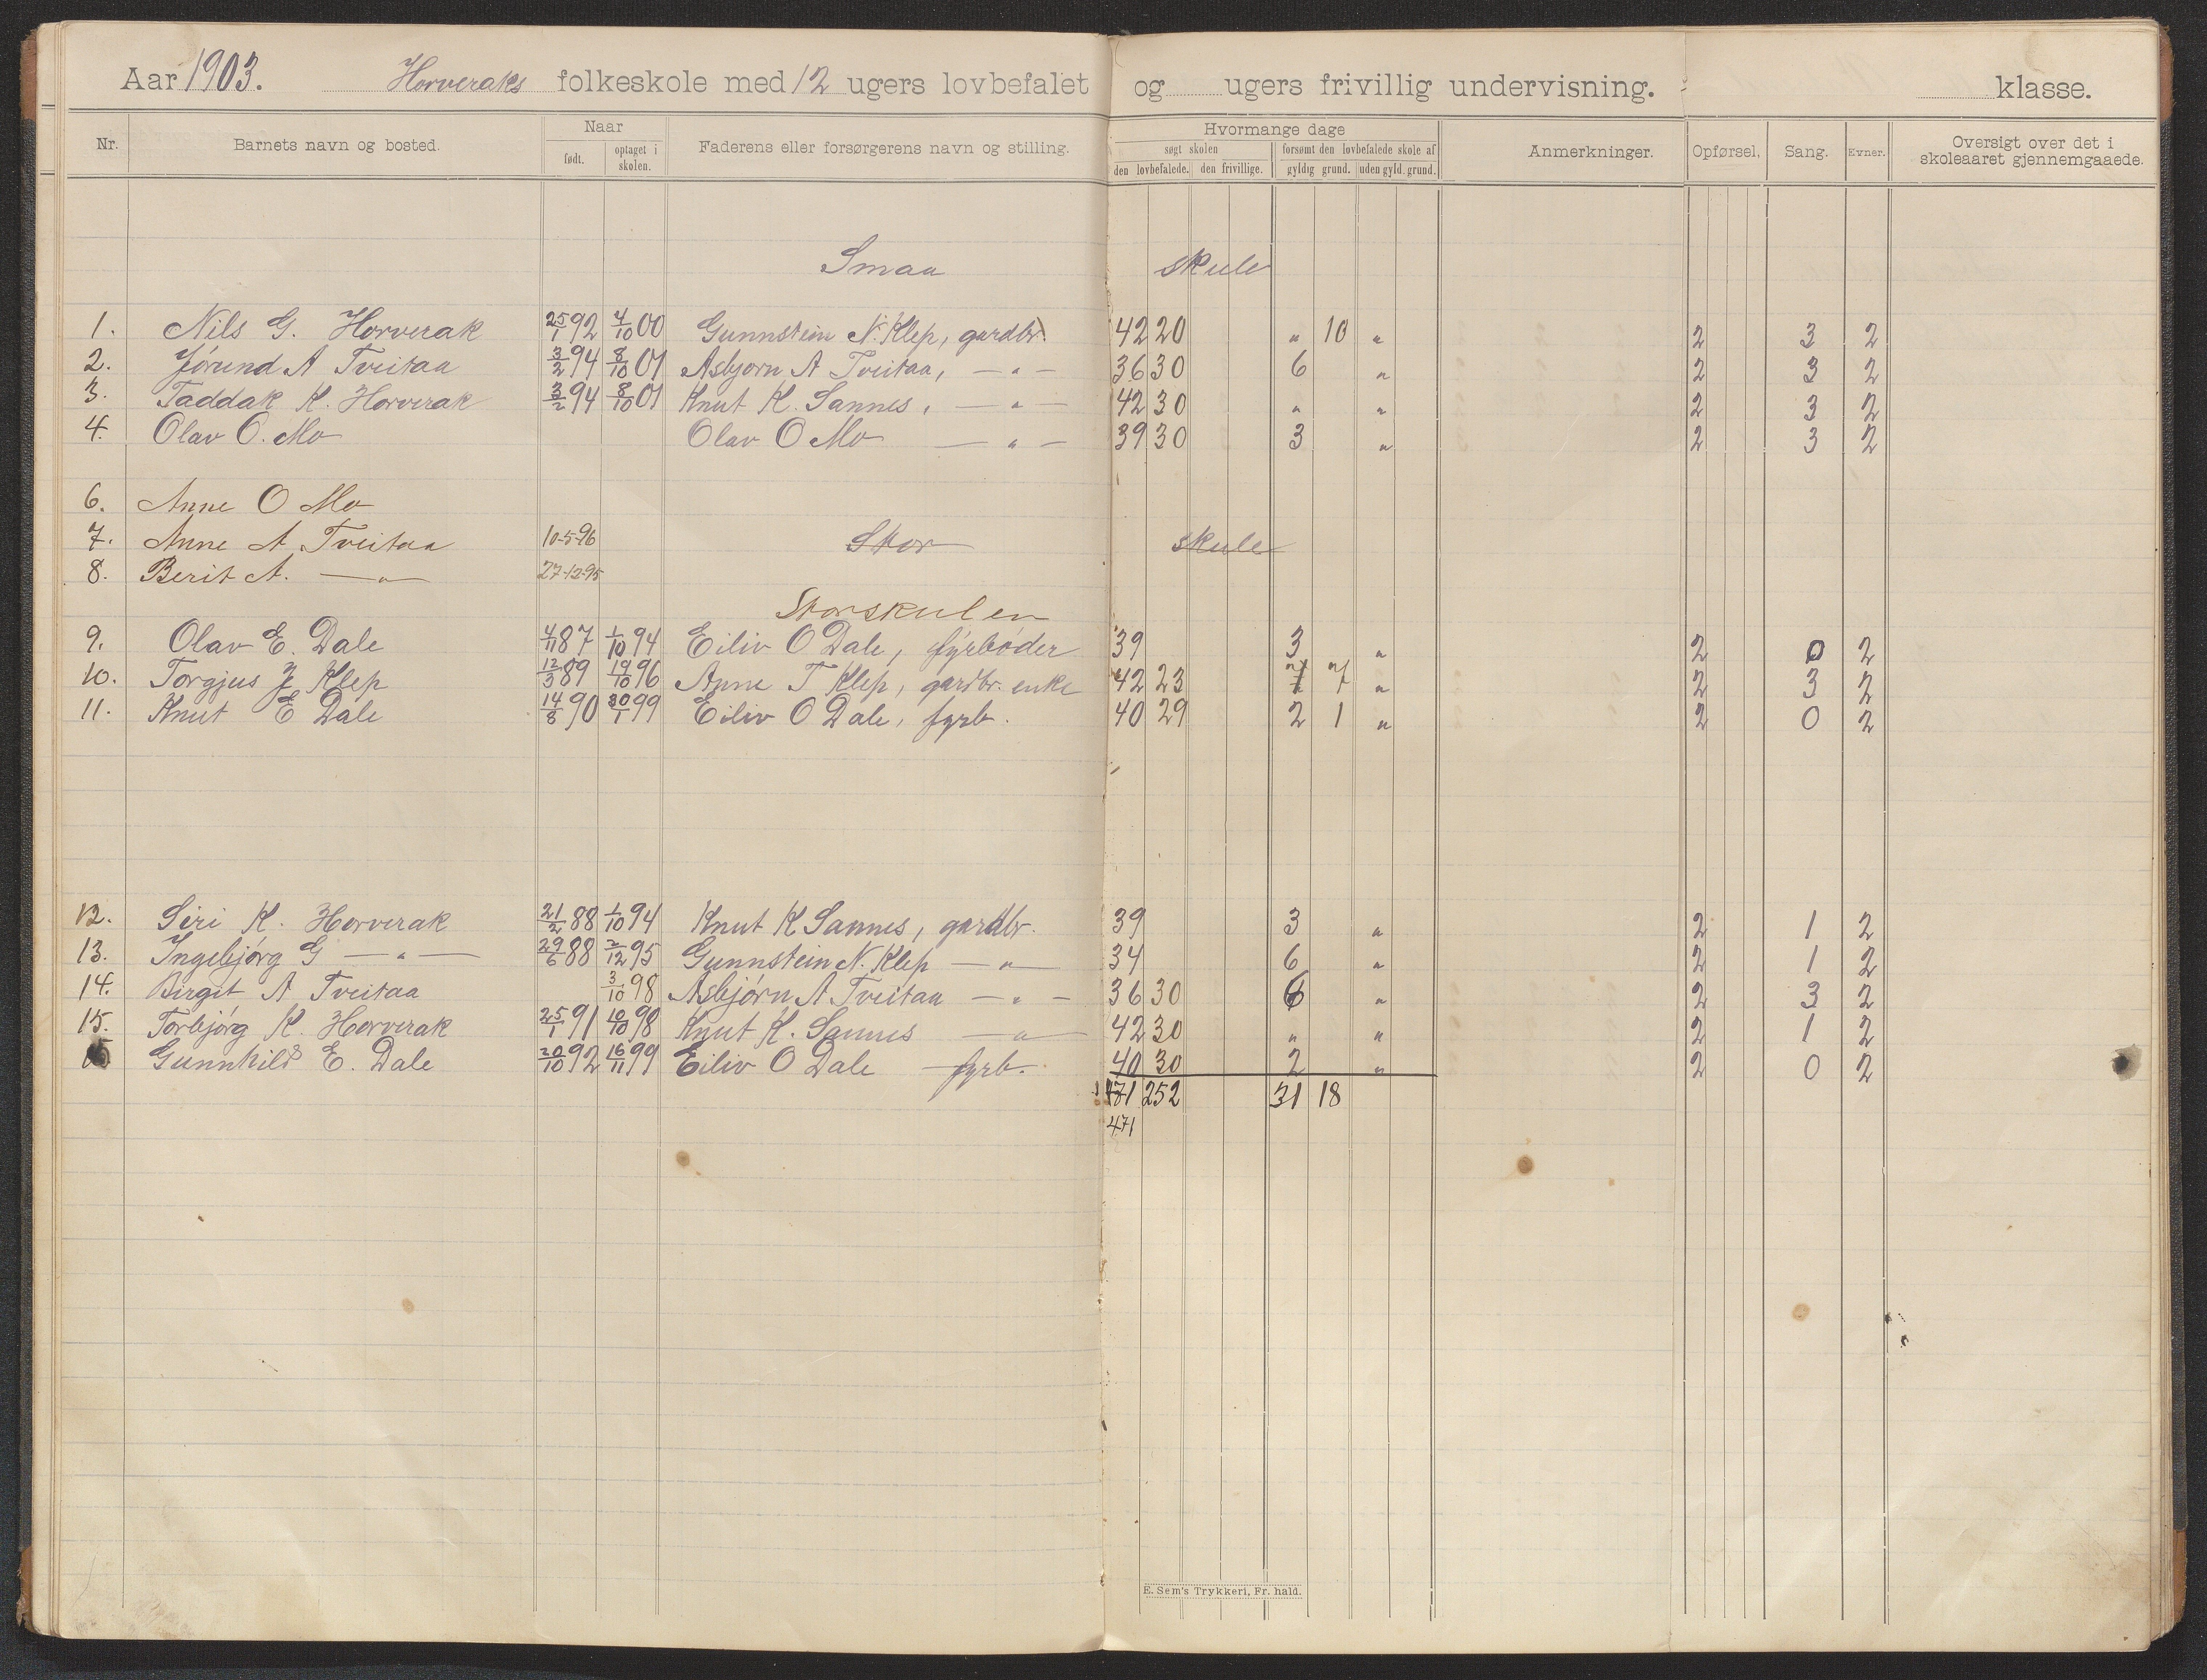 Aar 1903. Horveraks folkeskole med 12 ugers lovbefalet og ugers frivillig undervisning. klasse.
Nr. Barnets navn og bosted. Naar født. optaget i skolen. Faderens eller forsørgerens navn og stilling. Hvormange dage søgt skolen den lovbefalede. den frivillige. forsømt den lovbefalede skole af gyldig grund. uden gyld. grund. Anmerkninger. Opførsel. Sang. Evner. Oversigt over det i skoleaaret gjennemgaaede.
Smaa skule
1. Nils G. Horverak 25/1 92 4/10 00 Gunnstein N. Klep, gardbr. 42 20 " 10 " 2 3 2
2. Jørund A Tveitaa 3/2 94 8/10 01 Asbjørn A Tveitaa, — " — 36 30 6 " 2 3 2
3. Taddak K. Horverak 3/2 94 8/10 01 Knut K. Sannes, — " — 42 30 " " 2 3 2
4. Olav O. Mo Olav O Mo — " — 39 30 3 " 2 3 2
6. Anne O Mo
7. Anne A Tveitaa 10-5-96 Stor skule
8. Berit A. — " — 27-12-95
Storskulen
9. Olav E. Dale 4/11 87 1/10 94 Eiliv O Dale, fyrbøder 39 3 " 2 0 2
10. Torgjus J Klep 12/3 89 19/10 96 Anne T Klep, gardbr. enke 42 23 7 " 2 3 2
11. Knut E Dale 14/8 90 30/1 99 Eiliv O Dale, fyrb. 40 29 2 1 " 2 0 2
12. Siri K. Horverak 21/2 88 1/10 94 Knut K Sannes, gardbr. 39 3 " 2 1 2
13. Ingebjørg G — " — 29/6 88 2/12 95 Gunnstein N. Klep — " — 34 6 " 2 1 2
14. Birgit A Tveitaa 3/10 98 Asbjørn A Tveitaa — " — 36 30 6 " 2 3 2
15. Torbjørg K. Horverak 25/1 91 10/10 98 Knut K. Sannes — " — 42 30 " " 2 1 2
Gunnhild E. Dale 20/10 92 16/11 99 Eiliv O Dale fyrb. 40 30 2 " 2 0 2
471 252 31 18
471
E. Sem's Trykkeri, Fr. hald.